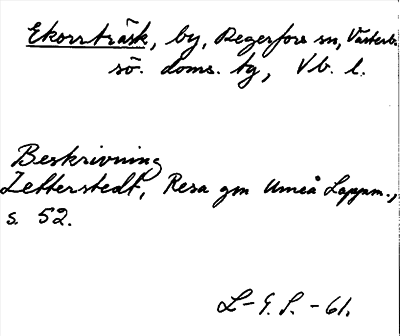 Ekorrträsk, by, Degerfors sn, Västerb.
sö. doms. tg, Vb. l.
Beskrivning
Zetterstedt, Resa gm Umeå Lappm.,
s. 52.
L-G. S. -61.